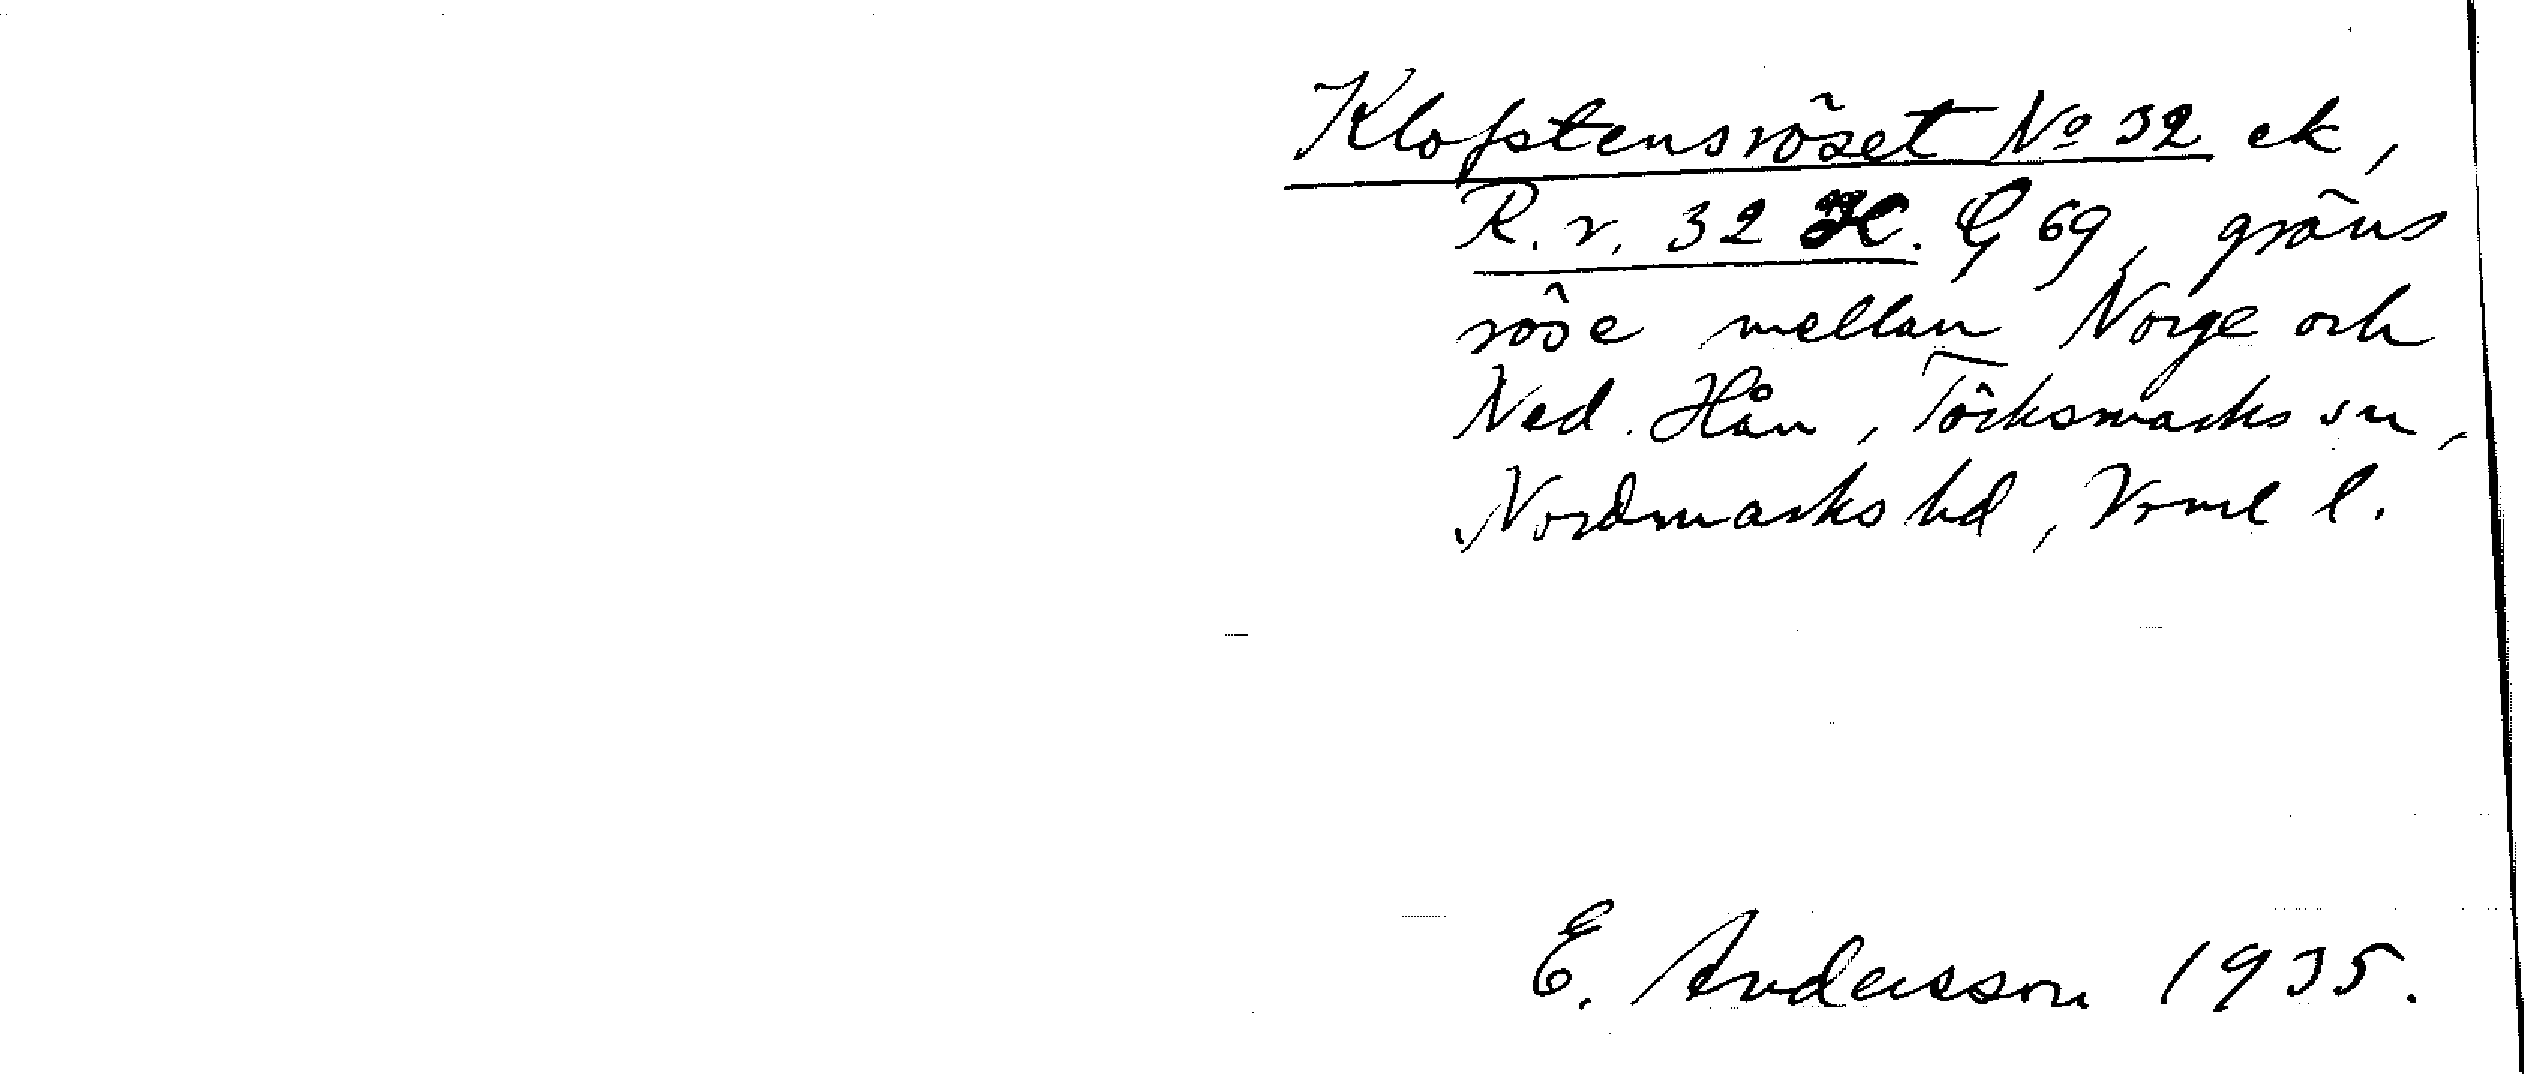 Klofstensröset No 32 ek,
R. r. 32 K. G 69, gräns
röse mellan Norge och
Ned. Hån, Töcksmarks sn,
Nordmarks hd, Vrml l.
E. Andersson 1935.